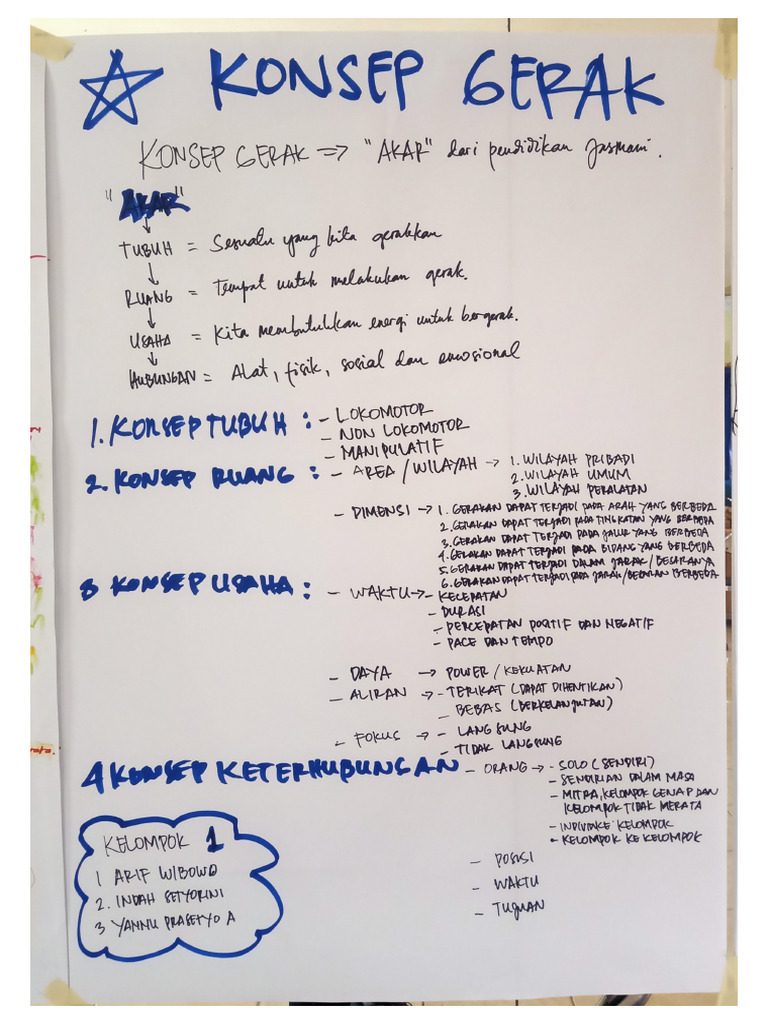 KONSEP GERAK
KONSEP GERAK => "AKAR" dari pendidikan Jasmani.
"AKAR"
TUBUH = Sesuatu yang kita gerakkan
RUANG = Tempat untuk melakukan gerak.
USAHA = Kita membutuhkan energi untuk bergerak.
HUBUNGAN = Alat, fisik, sosial dan emosional
1. KONSEP TUBUH : - LOKOMOTOR
- NON LOKOMOTOR
- MANIPULATIF
2. KONSEP RUANG : - AREA / WILAYAH → 1. WILAYAH PRIBADI
2. WILAYAH UMUM
3. WILAYAH PERALATAN
- DIMENSI → 1. GERAKAN DAPAT TERJADI PADA ARAH YANG BERBEDA
2. GERAKAN DAPAT TERJADI PADA TINGKATAN YANG BERBEDA
3. GERAKAN DAPAT TERJADI PADA JALUR YANG BERBEDA
4. GERAKAN DAPAT TERJADI PADA BIDANG YANG BERBEDA
5. GERAKAN DAPAT TERJADI DALAM JARAK / BESARANYA
6. GERAKAN DAPAT TERJADI PADA JARAK/BESARAN BERBEDA
3 KONSEP USAHA : - WAKTU → - KECEPATAN
- DURASI
- PERCEPATAN POSITIF DAN NEGATIF
- PACE DAN TEMPO
- DAYA → POWER / KEKUATAN
- ALIRAN → - TERIKAT (DAPAT DIHENTIKAN)
- BEBAS (BERKELANJUTAN)
- FOKUS → - LANGSUNG
- TIDAK LANGSUNG
4 KONSEP KETERHUBUNGAN - ORANG → - SOLO (SENDIRI)
- SENDIRIAN DALAM MASA
- MITRA, KELOMPOK GENAP DAN
KELOMPOK TIDAK MERATA
- KELOMPOK
- KELOMPOK KE KELOMPOK
- POSISI
- WAKTU
- TUJUAN
KELOMPOK 1
1 ARIF WIBOWO
2. INDAH SETYORINI
3 YANNU PRASETYO A